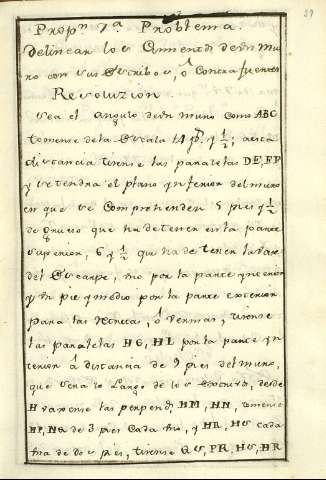 39
Propn 7a Problema.
Delinear los Cimentos de un mu
ro con sus Estribos, ô Contrafuertes
Resoluzion
Sea el angulo de un muro como ABC
tomense de la Escala 14 ps y ½; a esta
distancia tirense las paralelas DE, EF
y se tendra el plano ynferior del muro
en que se Comprehenden 5 pies y ½
de grueso que ha de tener en la parte
superior, 6 y ½ que ha de tener la vase
del Escarpe, uno por la parte ynterior
y un pie y medio por la parte exterior
para las Retretas, ô vermas, tirense
las paralelas HG, HL por la parte yn
terior â distancia de 9 pies del muro,
que sera lo Largo de los Estrivos, desde
H saquense las perpend. HM, HN, tomense
HP, NQ de 3 pies Cada uno, y HR, HS cada
una de dos pies, tirense QS, PR, HS, HR